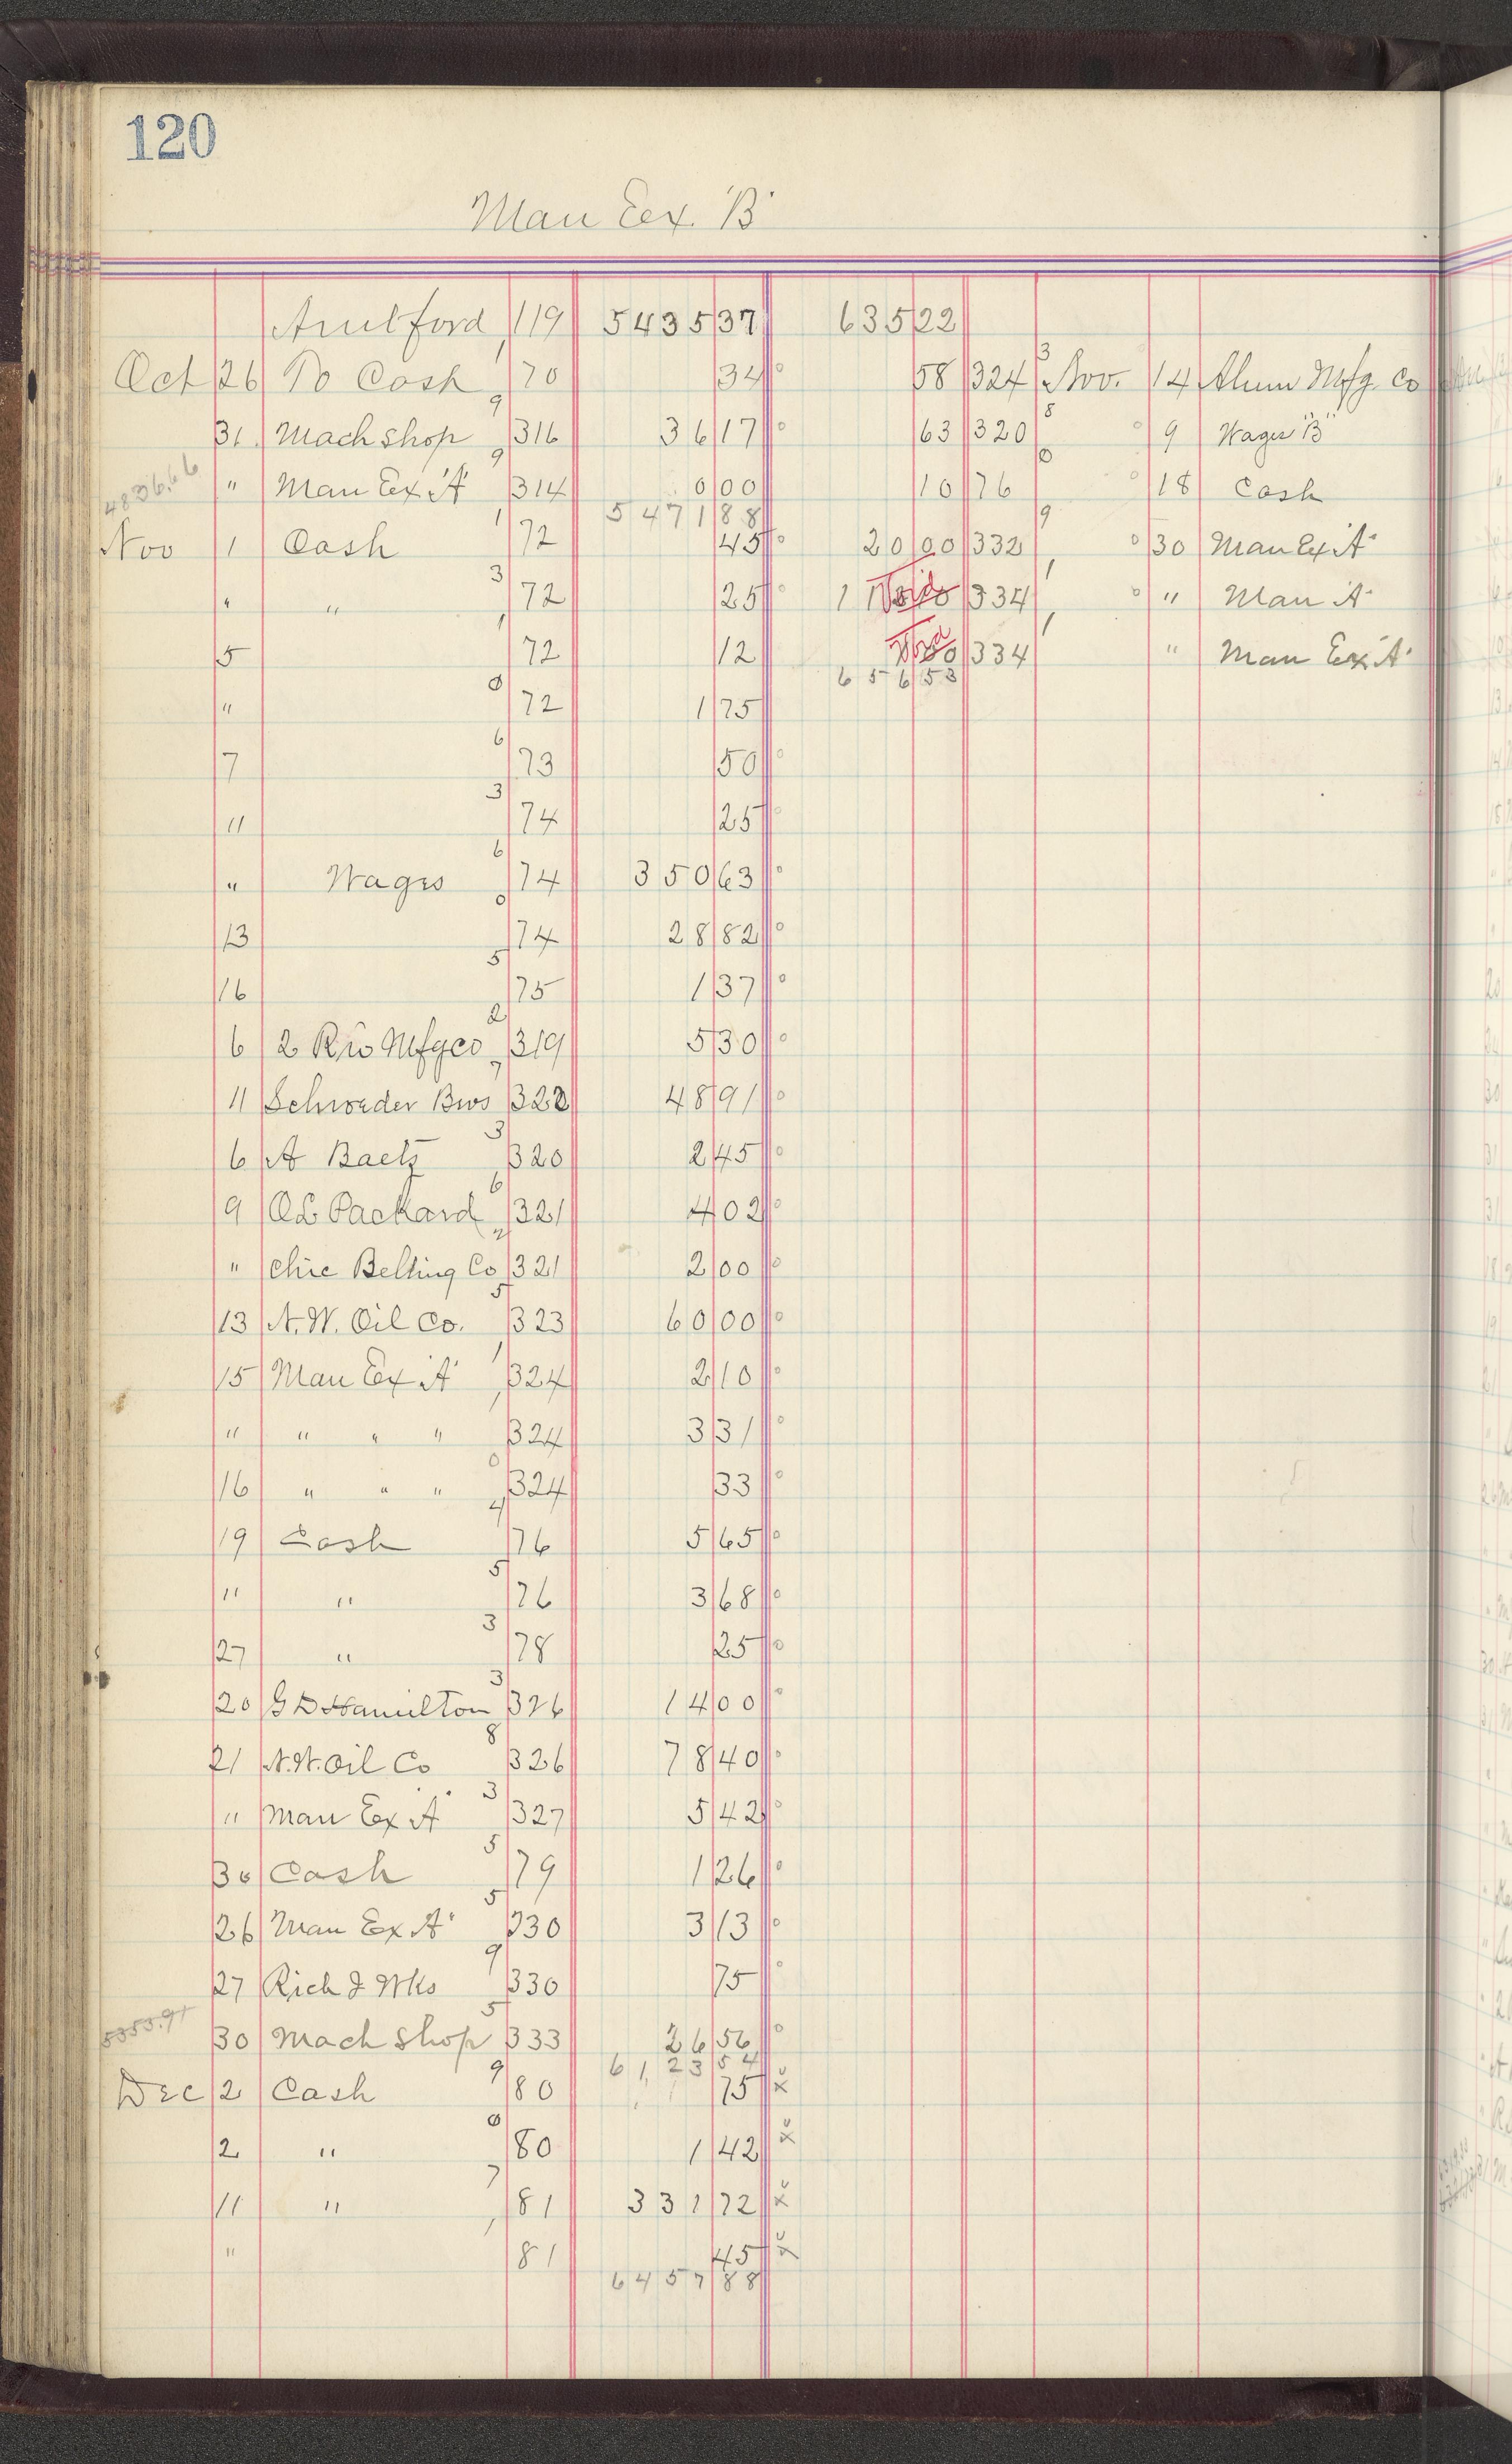 120
Man Ex. "B"
Amt ford 119 5435 37 635 22
Oct 26 To Cash 70 34 58 324 Nov. 14 Alum Mfg. Co
31 Mach shop 316 36 17 63 320 9 Wages "B"
4836.66 " Man Ex "A" 314 0 00 10 76 18 Cash
5471 88
Nov 1 Cash 72 45 20 00 332 30 Man Ex "A"
" " 72 25 Void 334 " Man "A"
5 72 12 Void 334 " Man Ex "A"
656 53
" 72 1 75
7 73 50
11 74 25
" Wages 74 350 63
13 74 28 82
16 75 1 37
6 2 Riv Mfg co 319 5 30
11 Schroeder Bros 322 48 91
6 A Baetz 320 2 45
9 OL Packard 321 4 02
" Chic Belting Co 321 2 00
13 N.W. Oil Co. 323 60 00
15 Man Ex "A" 324 2 10
" " " " 324 3 31
16 " " " 324 33
19 Cash 76 5 65
" " 76 3 68
27 " 78 25
20 G D Hamilton 326 14 00
21 N.W. Oil Co 326 78 40
" Man Ex "A" 327 5 42
30 Cash 79 1 26
26 Man Ex "A" 330 3 13
27 Rich I Wks 330 75
5355.91 30 Mach Shop 333 26 56
6123 54
Dec 2 Cash 80 75 x
2 " 80 1 42 x
11 " 81 331 72 x
" 81 45 x
6457 88